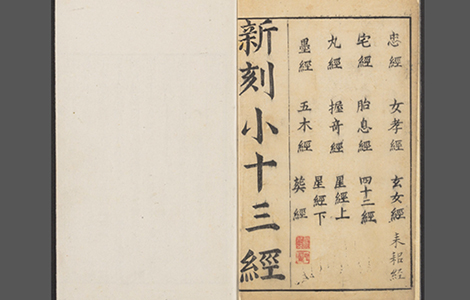 忠經 女孝經 玄女經 耒耜經
宅經 胎息經 四十二經
丸經 握奇經 星經上
星經下
墨經 五木經 葬經
新刻小十三經